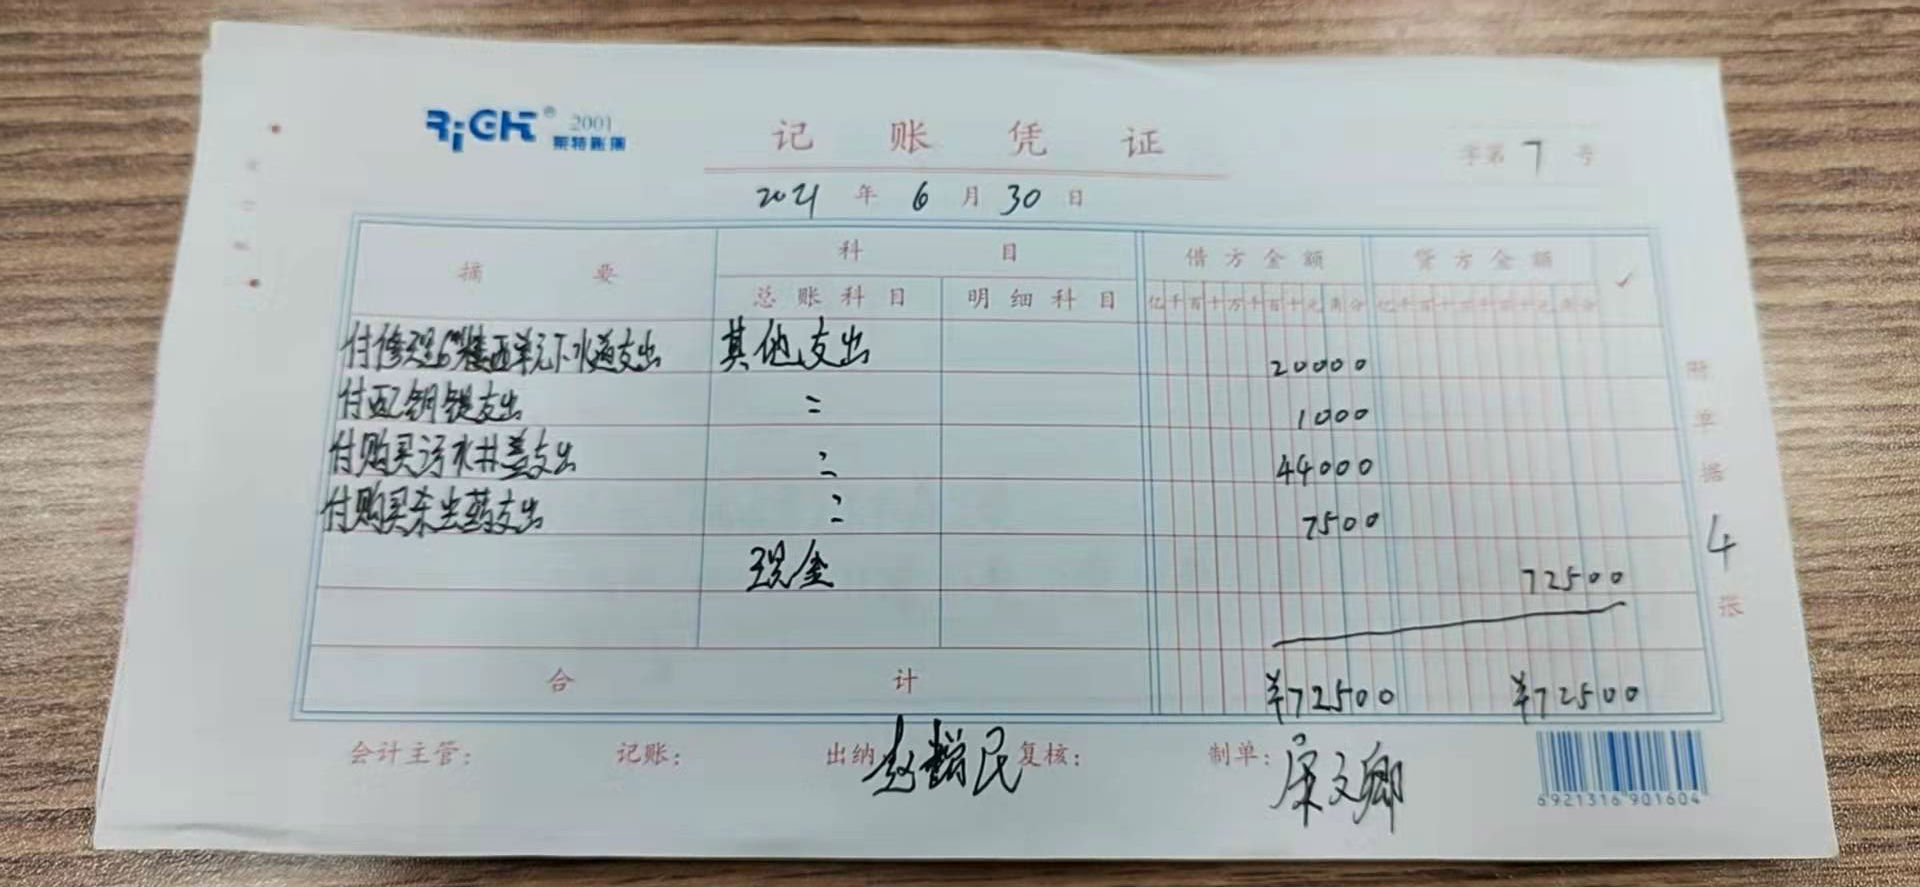 RiGHT® 2001
斯特账簿
记账凭证
字第 7 号
2021 年 6 月 30 日
摘要 科目 借方金额 贷方金额 ✓
总账科目 明细科目 亿千百十万千百十元角分 亿千百十万千百十元角分
付修理6#楼西单元下水道支出 其他支出 20000
付配钥匙支出 〃 1000
付购买污水井盖支出 〃 44000
付购买杀虫药支出 〃 7500
现金 72500
合计 ¥72500 ¥72500
附单据 4 张
会计主管: 记账: 出纳 赵增民 复核: 制单: 宋文卿
6921316901604